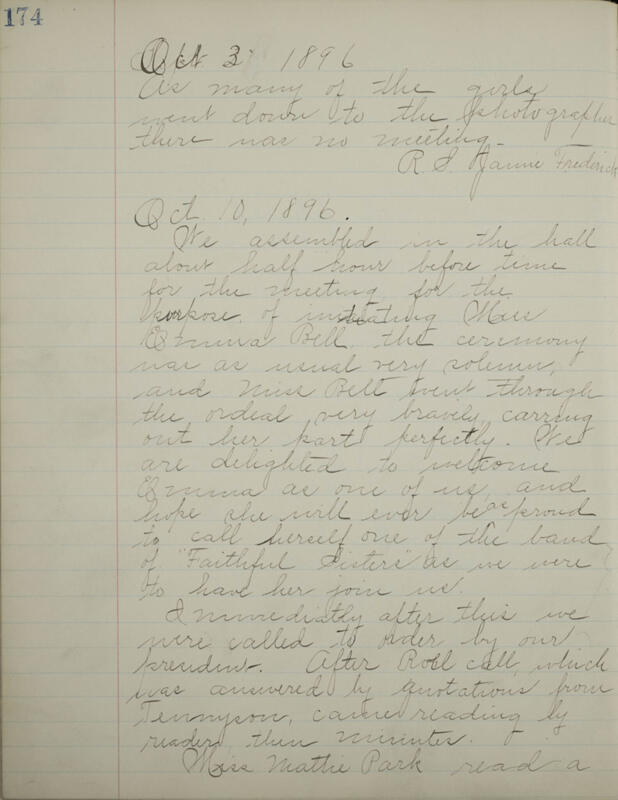 174
Oct 3, 1896
As many of the girls
went down to the photographer
there was no meeting.
R. S. Janne Frederick
Oct. 10, 1896.
We assembled in the hall
about half hour before time
for the meeting, for the
purpose of initiating Miss
Emma Bell. the ceremony
was as usual very solemn,
and Miss Bell went through
the ordeal very bravely, carring
out her part perfectly. We
are delighted to welcome
Emma as one of us, and
hope she will ever be as proud
to call herself one of the band
of "Faithful Sisters" as we were
to have her join us.
Immediatly after this we
were called to order by our
president. After Roll call, which
was answered by quotations from
Tennyson, came reading by
reader, then minutes.
Miss Mattie Park read a